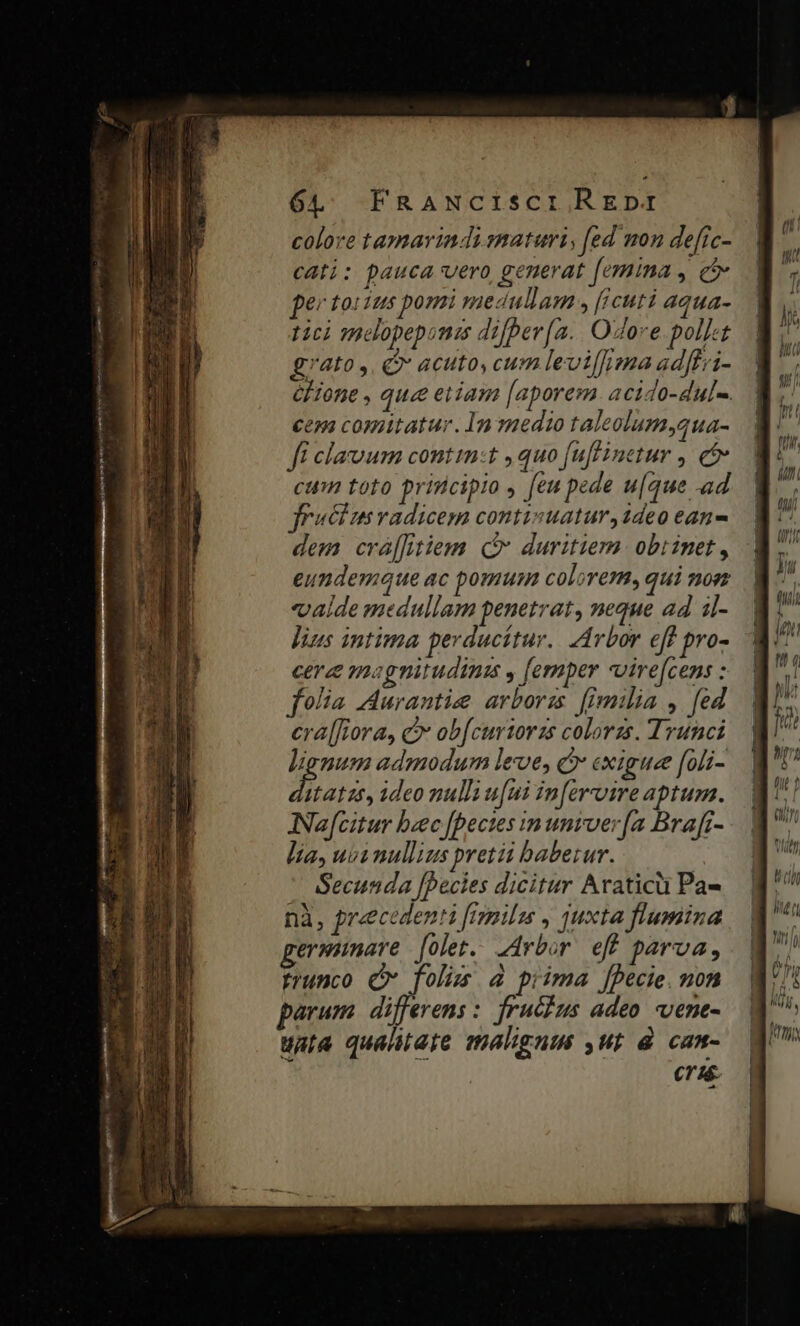 64 FRANCISCI REDI
colore tamarindi maturi, ſed non deſic-
cati: pauca vero generat ſemina, &
per totius pomi medullam, ſicuti aqua-
tici melopeponis diſperſa. Odore pollet
grato, & acuto, cum leviſſima adſtri-
ctione, quæ etiam ſaporem acido-dul-
cem comitatur. In medio taleolum, qua-
ſi clavum continet, quo ſuſtinetur, &
cum toto principio, ſeu pede uſque ad
fructus radicem continuatur, ideo ean-
dem craſſitiem & duritiem obtinet,
eundemque ac pomum colorem, qui non
valde medullam penetrat, neque ad il-
lius intima perducítur. Arbor eſt pro-
ceræ magnitudinis, ſemper vireſcens:
folia Aurantiæ arboris ſimilia, ſed
craſſiora, & obſcurioris coloris. Trunci
lignum admodum leve, & exiguæ ſoli-
ditatis, ideo nulli uſui inſervire aptum.
Naſcitur hæc ſpecies in univerſa Braſi-
lia, ubi nullius pretii habetur.
Secunda ſpecies dicitur Araticù Pa-
nà, præcedenti ſimilis, juxta flumina
germinare ſolet. Arbor eſt parva,
trunco & foliis à prima ſpecie non
parum differens: fructus adeo vene-
nata qualitate malignus, ut à can-
cris